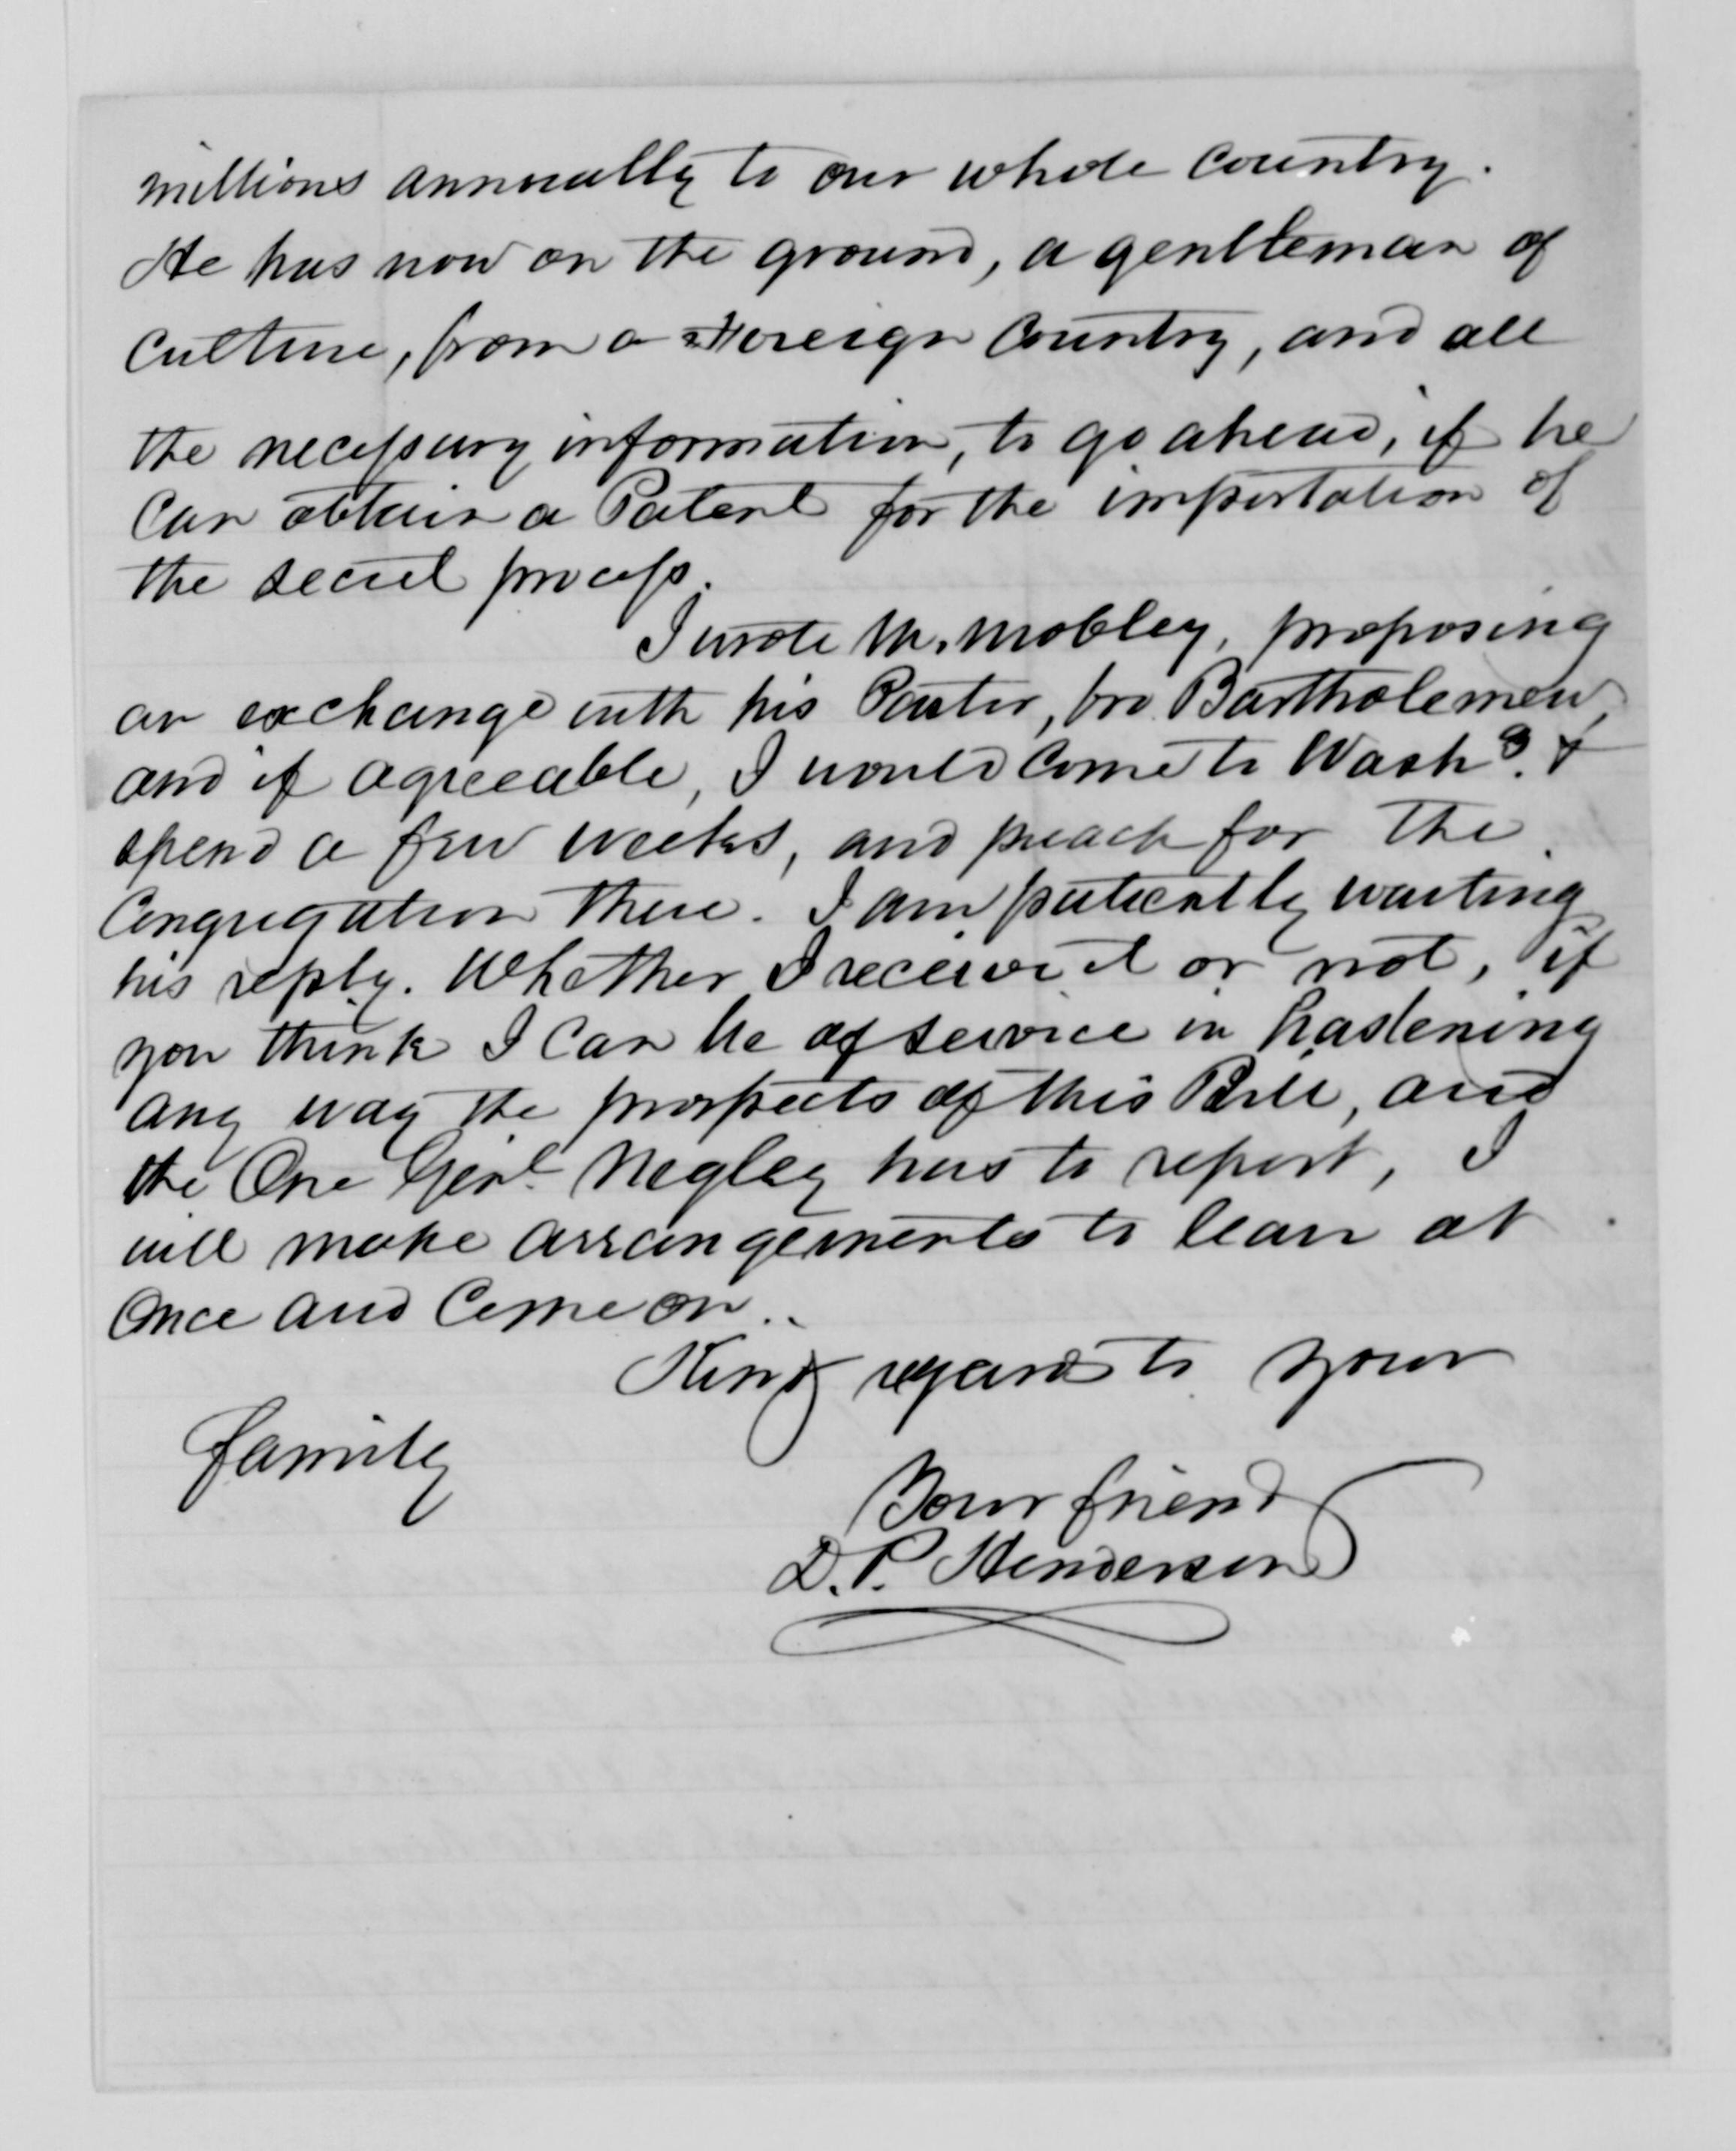 millions annually to our whole country.
He has now on the ground, a gentleman of
Culture, from a Foreign Country, and all
the necessary information, to go ahead, if he
Can obtain a Patent for the importation of
the secret process.
I wrote Mr. Mobley, proposing
an exchange with his Pastor, bro. Bartholemew,
and if agreeable, I would Come to Washg. &
spend a few weeks, and preach for the
Congregation there. I am patiently waiting
his reply. Whether I receive it or not, if
you think I Can be of service in hastening
any way the prospects of this Bill, and
the One Genl. Negley has to report, I
will make arrangements to leave at
Once and Come on.
Kind regards to your
family
Your friend
D. P. Henderson